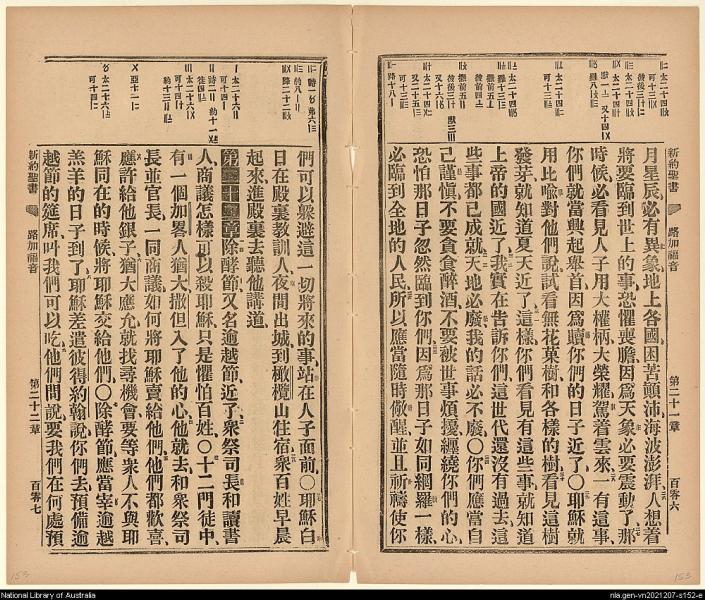 新約聖書 路加福音 第二十一章 百零六
月星辰必有異象地上各國困苦顛沛海波澎湃人想着
將要臨到世上的事恐懼喪膽因爲天象必要震動了那
時候必看見人子用大權柄大榮耀駕着雲來一有這事
你們就當興起舉首因爲贖你們的日子近了〇耶穌就
用比喻對他們說試看無花菓樹和各樣的樹看見這樹
發芽就知道夏天近了這樣你們看見有這些事就知道
上帝的國近了我實在告訴你們這世代還沒有過去這
些事都已成就天地必廢我的話必不廢〇你們應當自
己謹愼不要貪食醉酒不要被世事煩擾纒繞你們的心
恐怕那日子忽然臨到你們因爲那日子如同網羅一樣
必臨到全地的人民所以應當隨時儆醒並且祈禱使你
們可以躱避這一切將來的事站在人子面前〇耶穌白
日在殿裏教訓人夜間出城到橄欖山住宿衆百姓早晨
起來進殿裏去聽他講道
第二十二章除酵節又名逾越節近了衆祭司長和讀書
人商議怎樣可以殺耶穌只是懼怕百姓〇十二門徒中
有一個加畧人猶大撒但入了他的心他就去和衆祭司
長並官長一同商議如何將耶穌賣給他們他們都歡喜
應許給他銀子猶大應允就找尋機會要等衆人不與耶
穌同在的時候將耶穌交給他們〇除酵節應當宰逾越
羔羊的日子到了耶穌差遣彼得約翰說你們去預備逾
越節的筵席叫我們可以吃他們問說要我們在何處預
新約聖書 路加福音 第二十二章 百零七
153
153
National Library of Australia
nla.gen-vn2021207-s152-e